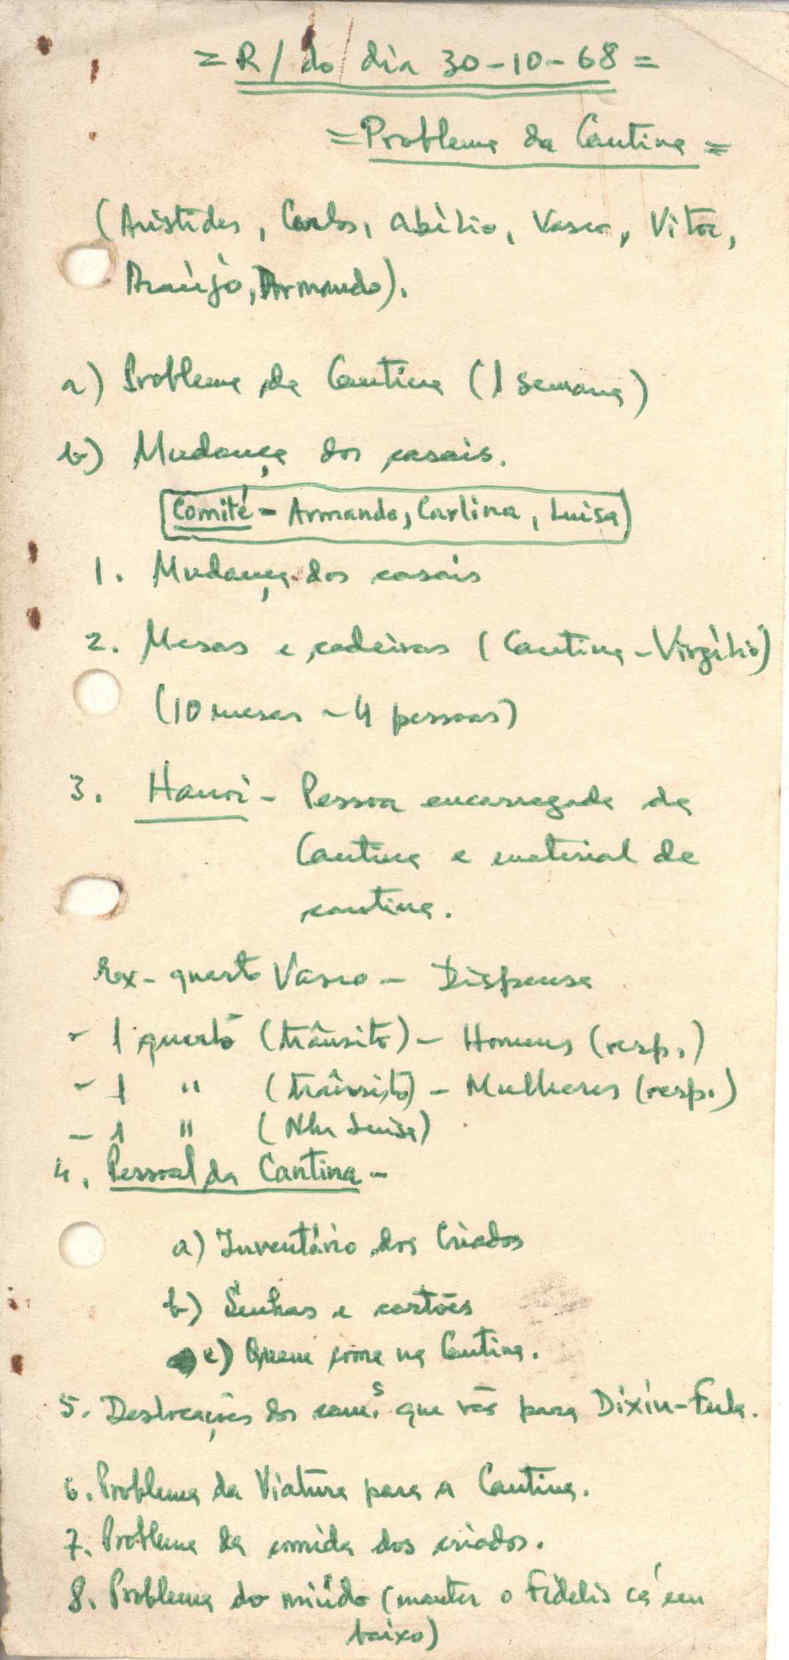 = R/ do dia 30-10-68 =
= Problema da Cantina =
(Aristides, Carlos, Abílio, Vasco, Vitor,
Araújo, Armando).
a) Problema da Cantina (1 semana)
b) Mudança dos casais.
Comité - Armando, Carlina, Luisa
1. Mudança dos casais
2. Mesas e cadeiras (Cantina - Virgílio)
(10 mesas - 4 pessoas)
3. Hanoi - Pessoa encarregada da
Cantina e material de
cantina.
Ex-quarto Vasco - Dispensa
- 1 quarto (trânsito) - Homens (resp.)
- 1 " (trânsito) - Mulheres (resp.)
- 1 " (Nha Luisa)
4. Pessoal da Cantina -
a) Inventário dos Criados
b) Senhas e cartões
c) Quem come na Cantina.
5. Deslocações dos cam.s que vão para Dixin-Fula.
6. Problema da Viatura para a Cantina.
7. Problema da comida dos criados.
8. Problema do miúdo (manter o Fidelis cá em
baixo)